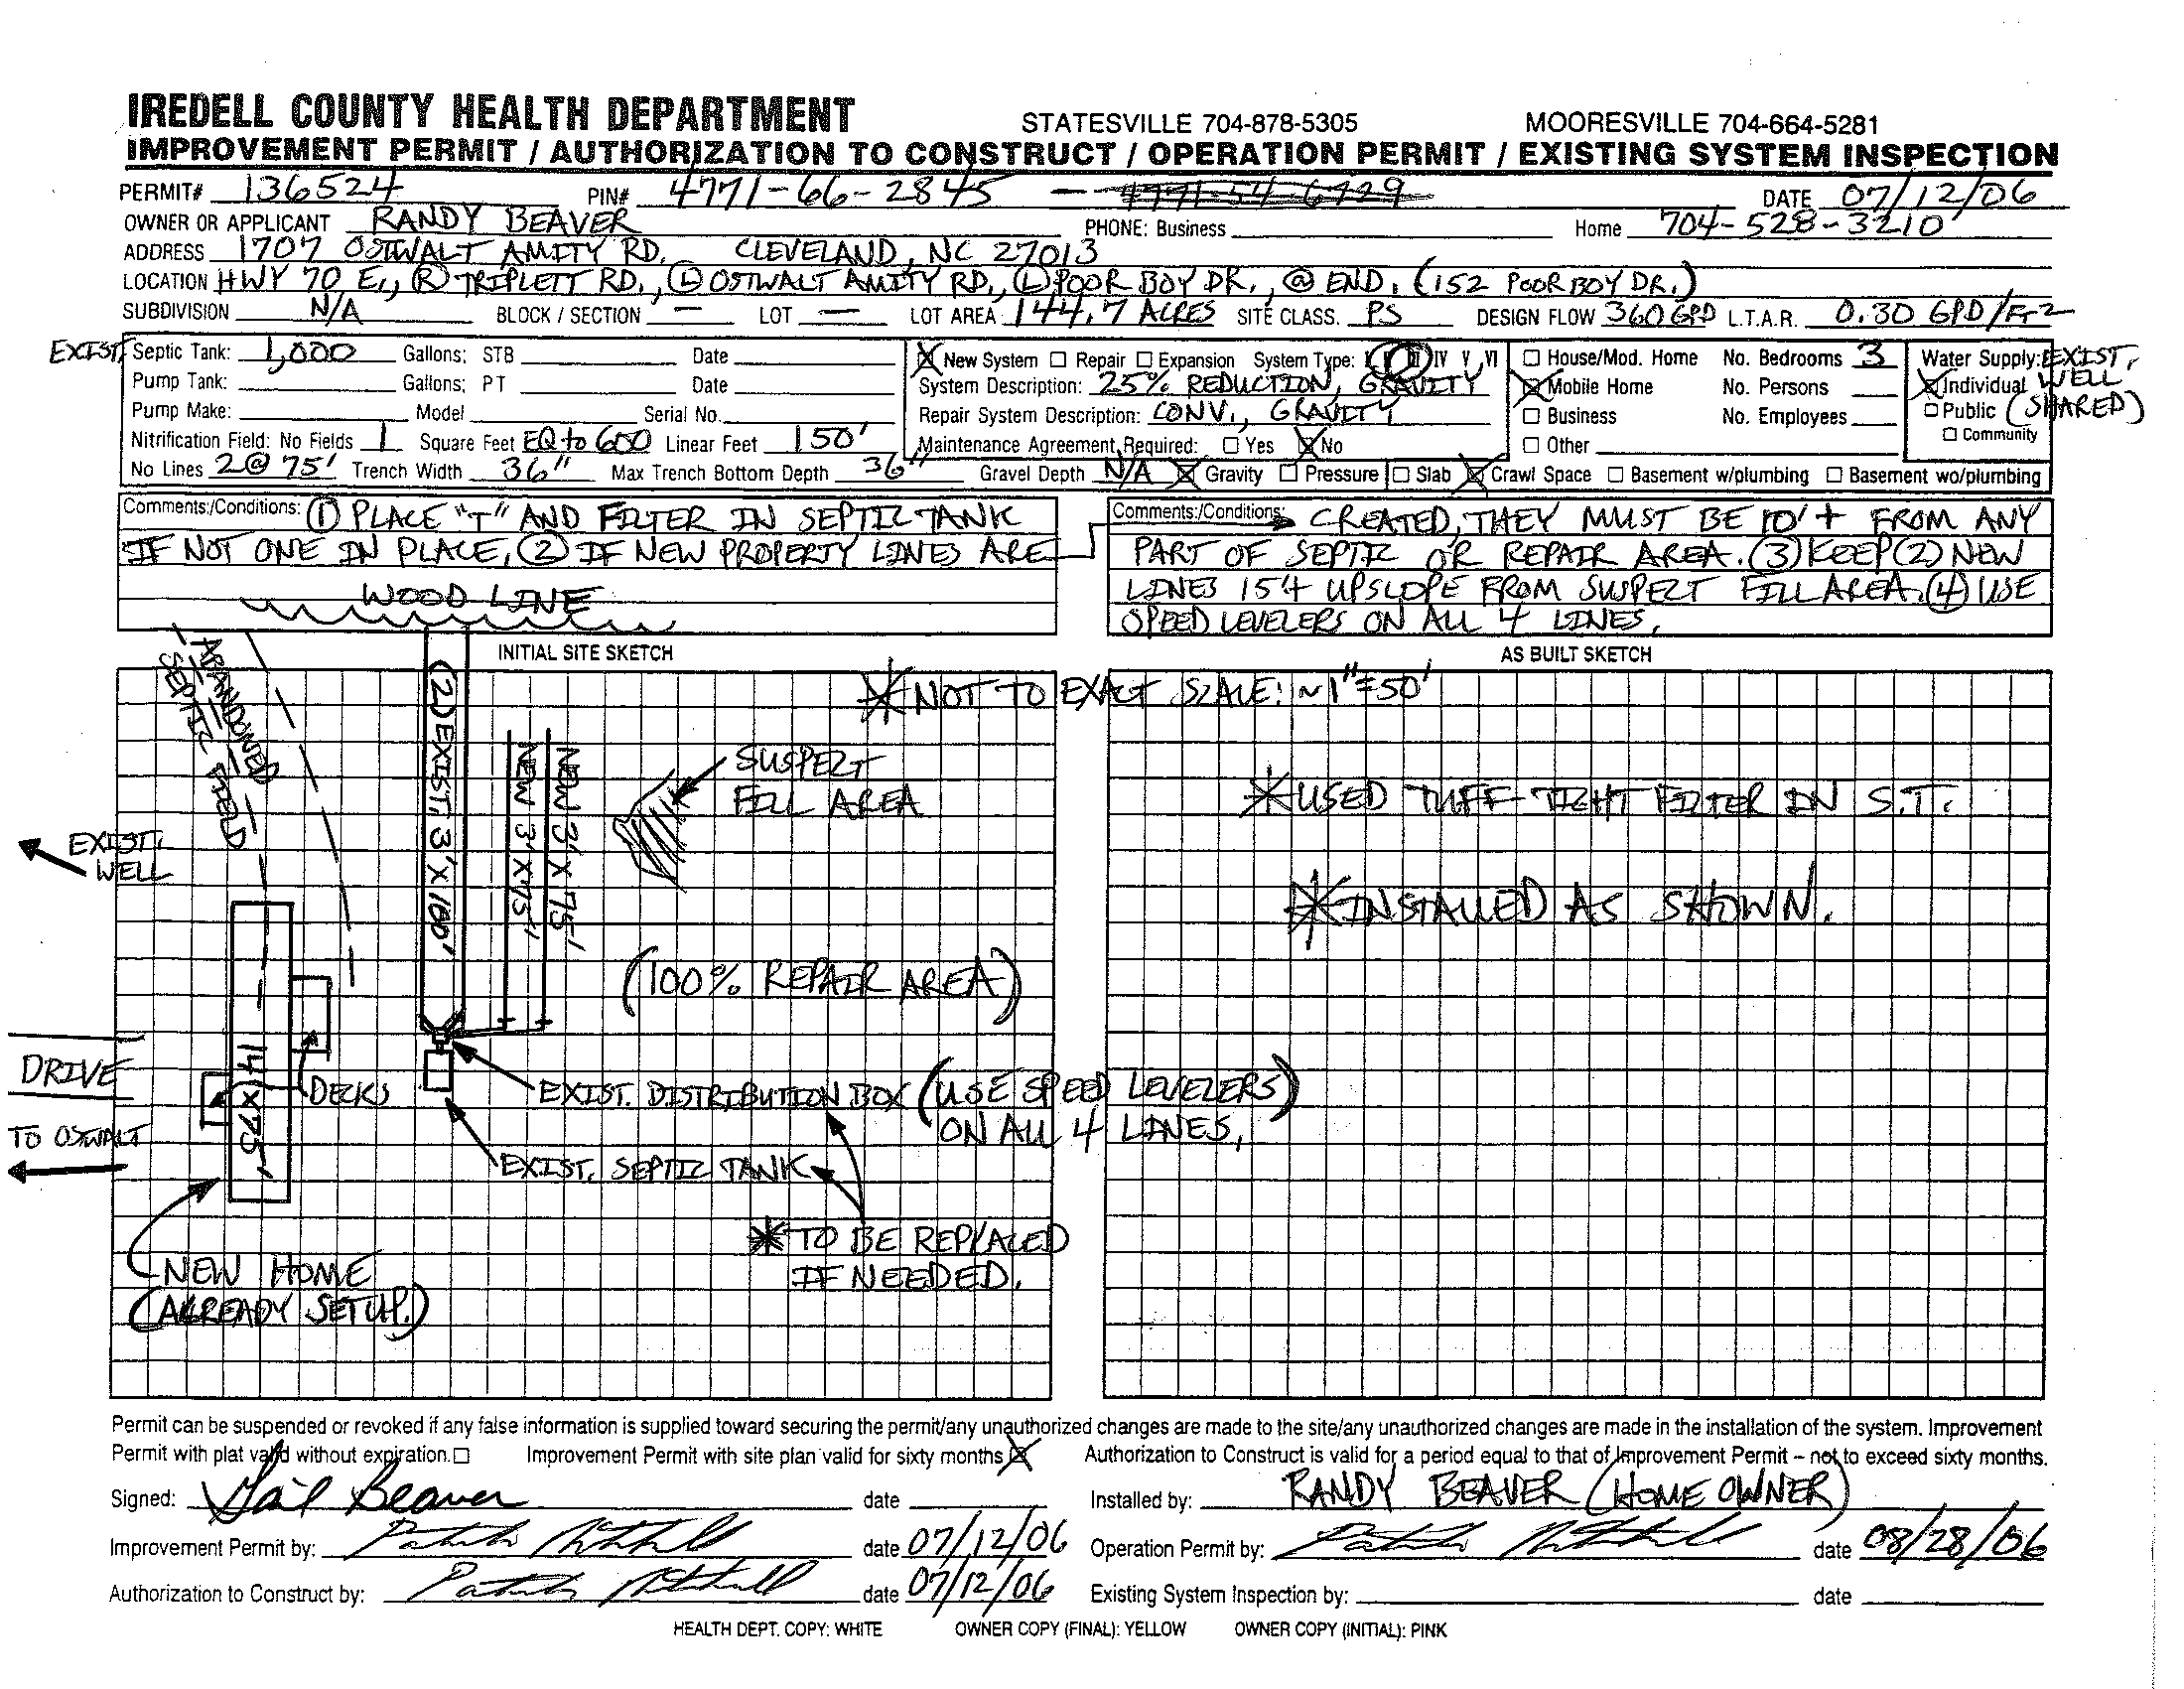 IREDELL COUNTY HEALTH DEPARTMENT STATESVILLE 704-878-5305 MOORESVILLE 704-664-5281
IMPROVEMENT PERMIT / AUTHORIZATION TO CONSTRUCT / OPERATION PERMIT / EXISTING SYSTEM INSPECTION
PERMIT# 136524 PIN# 4771-66-2845 - DATE 07/12/06
OWNER OR APPLICANT RANDY BEAVER PHONE: Business Home 704-528-3210
ADDRESS 1707 OSTWALT AMITY RD. CLEVELAND, NC 27013
LOCATION HWY 70 E., (R) TRIPLETT RD., (L) OSTWALT AMITY RD., (L) POOR BOY DR., @ END. (152 POOR BOY DR.)
SUBDIVISION N/A BLOCK / SECTION — LOT — LOT AREA 144.7 ACRES SITE CLASS. PS DESIGN FLOW 360 GPD L.T.A.R. 0.30 GPD/FT2
EXIST. Septic Tank: 1,000 Gallons; STB Date
Pump Tank: Gallons; PT Date
Pump Make: Model Serial No.
Nitrification Field: No Fields 1 Square Feet EQ to 600 Linear Feet 150'
No Lines 2 @ 75' Trench Width 36" Max Trench Bottom Depth 36" Gravel Depth N/A Gravity Pressure Slab Crawl Space Basement w/plumbing Basement wo/plumbing
New System Repair Expansion System Type: III IV V VI
System Description: 25% REDUCTION, GRAVITY
Repair System Description: CONV., GRAVITY
Maintenance Agreement Required: Yes No
House/Mod. Home No. Bedrooms 3
Mobile Home No. Persons
Business No. Employees
Other
Water Supply: EXIST.
Individual WELL
Public (SHARED)
Community
Comments:/Conditions: (1) PLACE "T" AND FILTER IN SEPTIC TANK
IF NOT ONE IN PLACE. (2) IF NEW PROPERTY LINES ARE
Comments:/Conditions: CREATED, THEY MUST BE 10'+ FROM ANY
PART OF SEPTIC OR REPAIR AREA. (3) KEEP (2) NEW
LINES 15'+ UPSLOPE FROM SUSPECT FILL AREA. (4) USE
SPEED LEVELERS ON ALL 4 LINES.
WOOD LINE
INITIAL SITE SKETCH
AS BUILT SKETCH
ABANDONED
SEPTIC FIELD
(2) EXIST. 3' X 100'
NEW 3' X 75'
NEW 3' X 75'
* NOT TO EXACT SCALE: ~1"=50'
SUSPECT
FILL AREA
* USED TUFF-TIGHT FILTER IN S.T.
EXIST.
WELL
* INSTALLED AS SHOWN.
(100% REPAIR AREA)
DRIVE
14' X 75'
DECKS
EXIST. DISTRIBUTION BOX (USE SPEED LEVELERS)
ON ALL 4 LINES.
TO OSTWALT
EXIST. SEPTIC TANK
* TO BE REPLACED
IF NEEDED.
NEW HOME
(ALREADY SETUP.)
Permit can be suspended or revoked if any false information is supplied toward securing the permit/any unauthorized changes are made to the site/any unauthorized changes are made in the installation of the system. Improvement
Permit with plat valid without expiration. Improvement Permit with site plan valid for sixty months Authorization to Construct is valid for a period equal to that of Improvement Permit – not to exceed sixty months.
Signed: Gail Beaver date Installed by: RANDY BEAVER (HOME OWNER)
Improvement Permit by: date 07/12/06 Operation Permit by: date 08/28/06
Authorization to Construct by: date 07/12/06 Existing System Inspection by: date
HEALTH DEPT. COPY: WHITE OWNER COPY (FINAL): YELLOW OWNER COPY (INITIAL): PINK